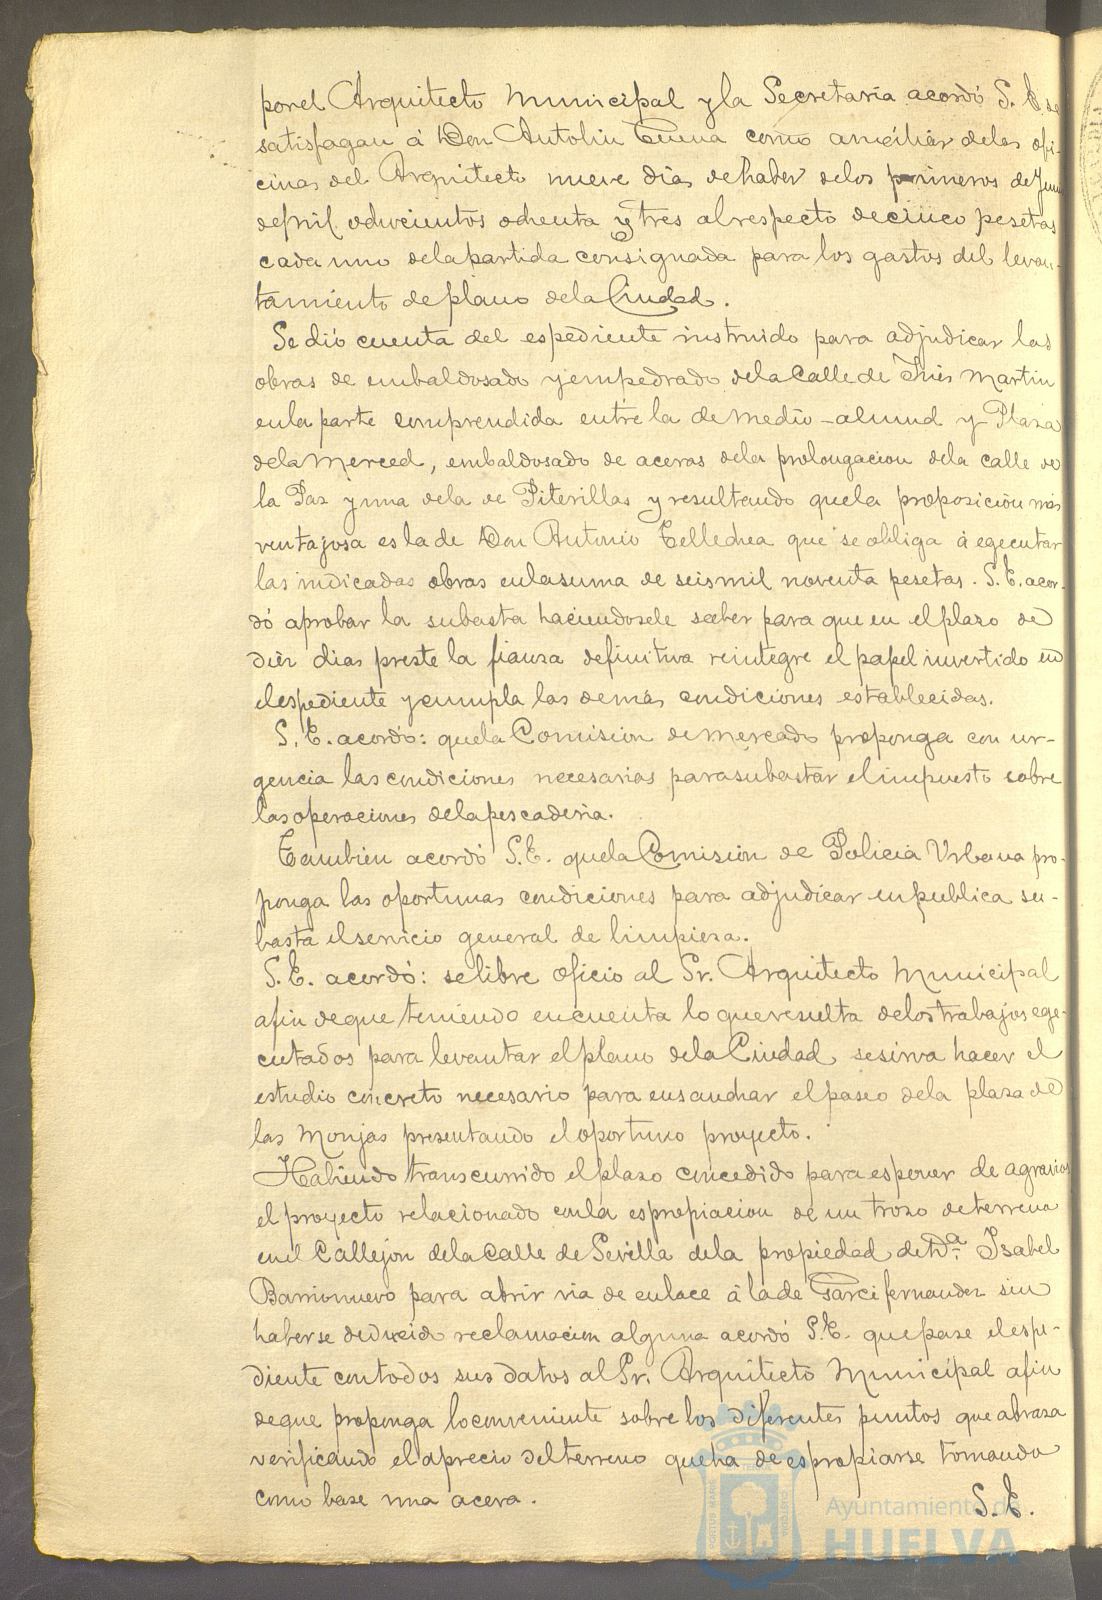 por el Arquitecto Municipal y la Secretaría acordó S. E. se
satisfagan á Don Antolin como ausiliar delas ofi-
cinas del Arquitecto nueve dias de haber delos primeros de
de mil ochocientos ochenta y tres al respecto de cinco pesetas
cada uno dela partida consignada para los gastos del levan-
tamiento de plano dela Ciudad.
Se dió cuenta del espediente instruido para adjudicar las
obras de embaldosado y empedrado dela Calle de Inés Martin
en la parte comprendida entre la de Medio-almud y Plaza
dela Merced, embaldosado de aceras dela prolongacion dela calle de
la Paz y una dela de Piterillas y resultando que la proposición más
ventajosa es la de Don Antonio Tellechea que se obliga á egecutar
las indicadas obras en la suma de seis mil noventa pesetas. S. E. acor-
dó aprobar la subasta haciendosele saber para que en el plazo de
diez dias preste la fianza definitiva reintegre el papel invertido en
el espediente y cumpla las demás condiciones establecidas.
S. E. acordó: que la Comision de Mercado proponga con ur-
gencia las condiciones necesarias para subastar el impuesto sobre
las operaciones dela pescaderia.
Tambien acordó S. E. que la Comisión de Policia Urbana pro-
ponga las oportunas condiciones para adjudicar en publica su-
basta el servicio general de limpieza.
S. E. acordó: se libre oficio al Sr. Arquitecto Municipal
afin de que teniendo en cuenta lo que resulta delos trabajos ege-
cutados para levantar el plano dela Ciudad, se sirva hacer el
estudio concreto necesario para ensanchar el paseo dela plaza de
las Monjas presentando el oportuno proyecto.
Habiendo transcurrido el plazo concedido para esponer de agravios
el proyecto relacionado con la espropiacion de un trozo de terreno
en el Callejón dela Calle de Sevilla dela propiedad de Dª. Isabel
Barrionuevo para abrir via de enlace á la de Garcifernandez sin
haberse deducido reclamacion alguna acordó S. E. que pase el espe-
diente con todos sus datos al Sr. Arquitecto Municipal afin
de que proponga lo conveniente sobre los diferentes puntos que abraza
verificando el aprecio del terreno que ha de espropiarse tomando
como base una acera.
S. E.
Ayuntamiento de
HUELVA